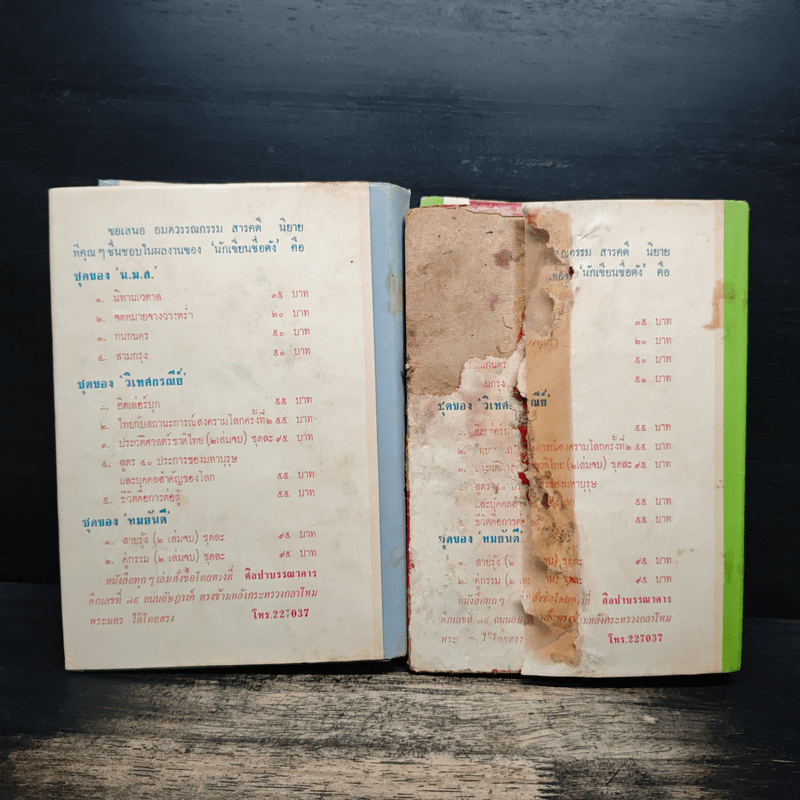 ขอเสนอ อมตวรรณกรรม สารคดี นิยาย
ที่คุณๆชื่นชอบในผลงานของ 'นักเขียนชื่อดัง' คือ
ชุดของ 'น.ม.ส.'
๑. นิทานเวตาล ๓๕ บาท
๒. จดหมายจางวางหร่ำ ๒๐ บาท
๓. กนกนคร ๕๐ บาท
๔. สามกรุง ๕๐ บาท
ชุดของ 'วิเทศกรณีย์'
๑. ฮิตเล่อร์บุก ๕๕ บาท
๒. ไทยกับสถานะการณ์สงครามโลกครั้งที่๒ ๕๕ บาท
๓. ประวัติศาสตร์ชาติไทย (๒เล่มจบ) ชุดละ ๙๕ บาท
๔. สูตร ๕๐ ประการของมหาบุรุษ
และบุคคลสำคัญของโลก ๕๕ บาท
๕. ชีวิตคือการต่อสู้ ๕๕ บาท
ชุดของ 'ทมยันตี'
๑. สายรุ้ง (๒ เล่มจบ) ชุดละ ๙๕ บาท
๒. คู่กรรม (๒ เล่มจบ) ชุดละ ๙๕ บาท
หนังสือทุกๆเล่มสั่งซื้อโดยตรงที่ ศิลปาบรรณาคาร
ตึกเลขที่ ๘๙ ถนนอัษฎางค์ ตรงข้ามหลังกระทรวงกลาโหม
พระนคร ได้โดยตรง โทร.227037
วรรณกรรม สารคดี นิยาย
'นักเขียนชื่อดัง' คือ
๓๕ บาท
๒๐ บาท
กนกนคร ๕๐ บาท
สามกรุง ๕๐ บาท
ชุดของ 'วิเทศกรณีย์'
๕๕ บาท
การณ์สงครามโลกครั้งที่๒ ๕๕ บาท
ไทย (๒เล่มจบ) ชุดละ ๙๕ บาท
ของมหาบุรุษ
๕๕ บาท
๕. ชีวิตคือการต่อสู้ ๕๕ บาท
ชุดของ 'ทมยันตี'
๑. สายรุ้ง (๒ เล่มจบ) ชุดละ ๙๕ บาท
๒. คู่กรรม (๒ เล่มจบ) ชุดละ ๙๕ บาท
หนังสือทุกๆ สั่งซื้อโดยตรงที่ ศิลปาบรรณาคาร
ตึกเลขที่ ๘๙ ถนนอัษฎางค์ ตรงข้ามหลังกระทรวงกลาโหม
พระ ได้โดยตรง โทร.227037